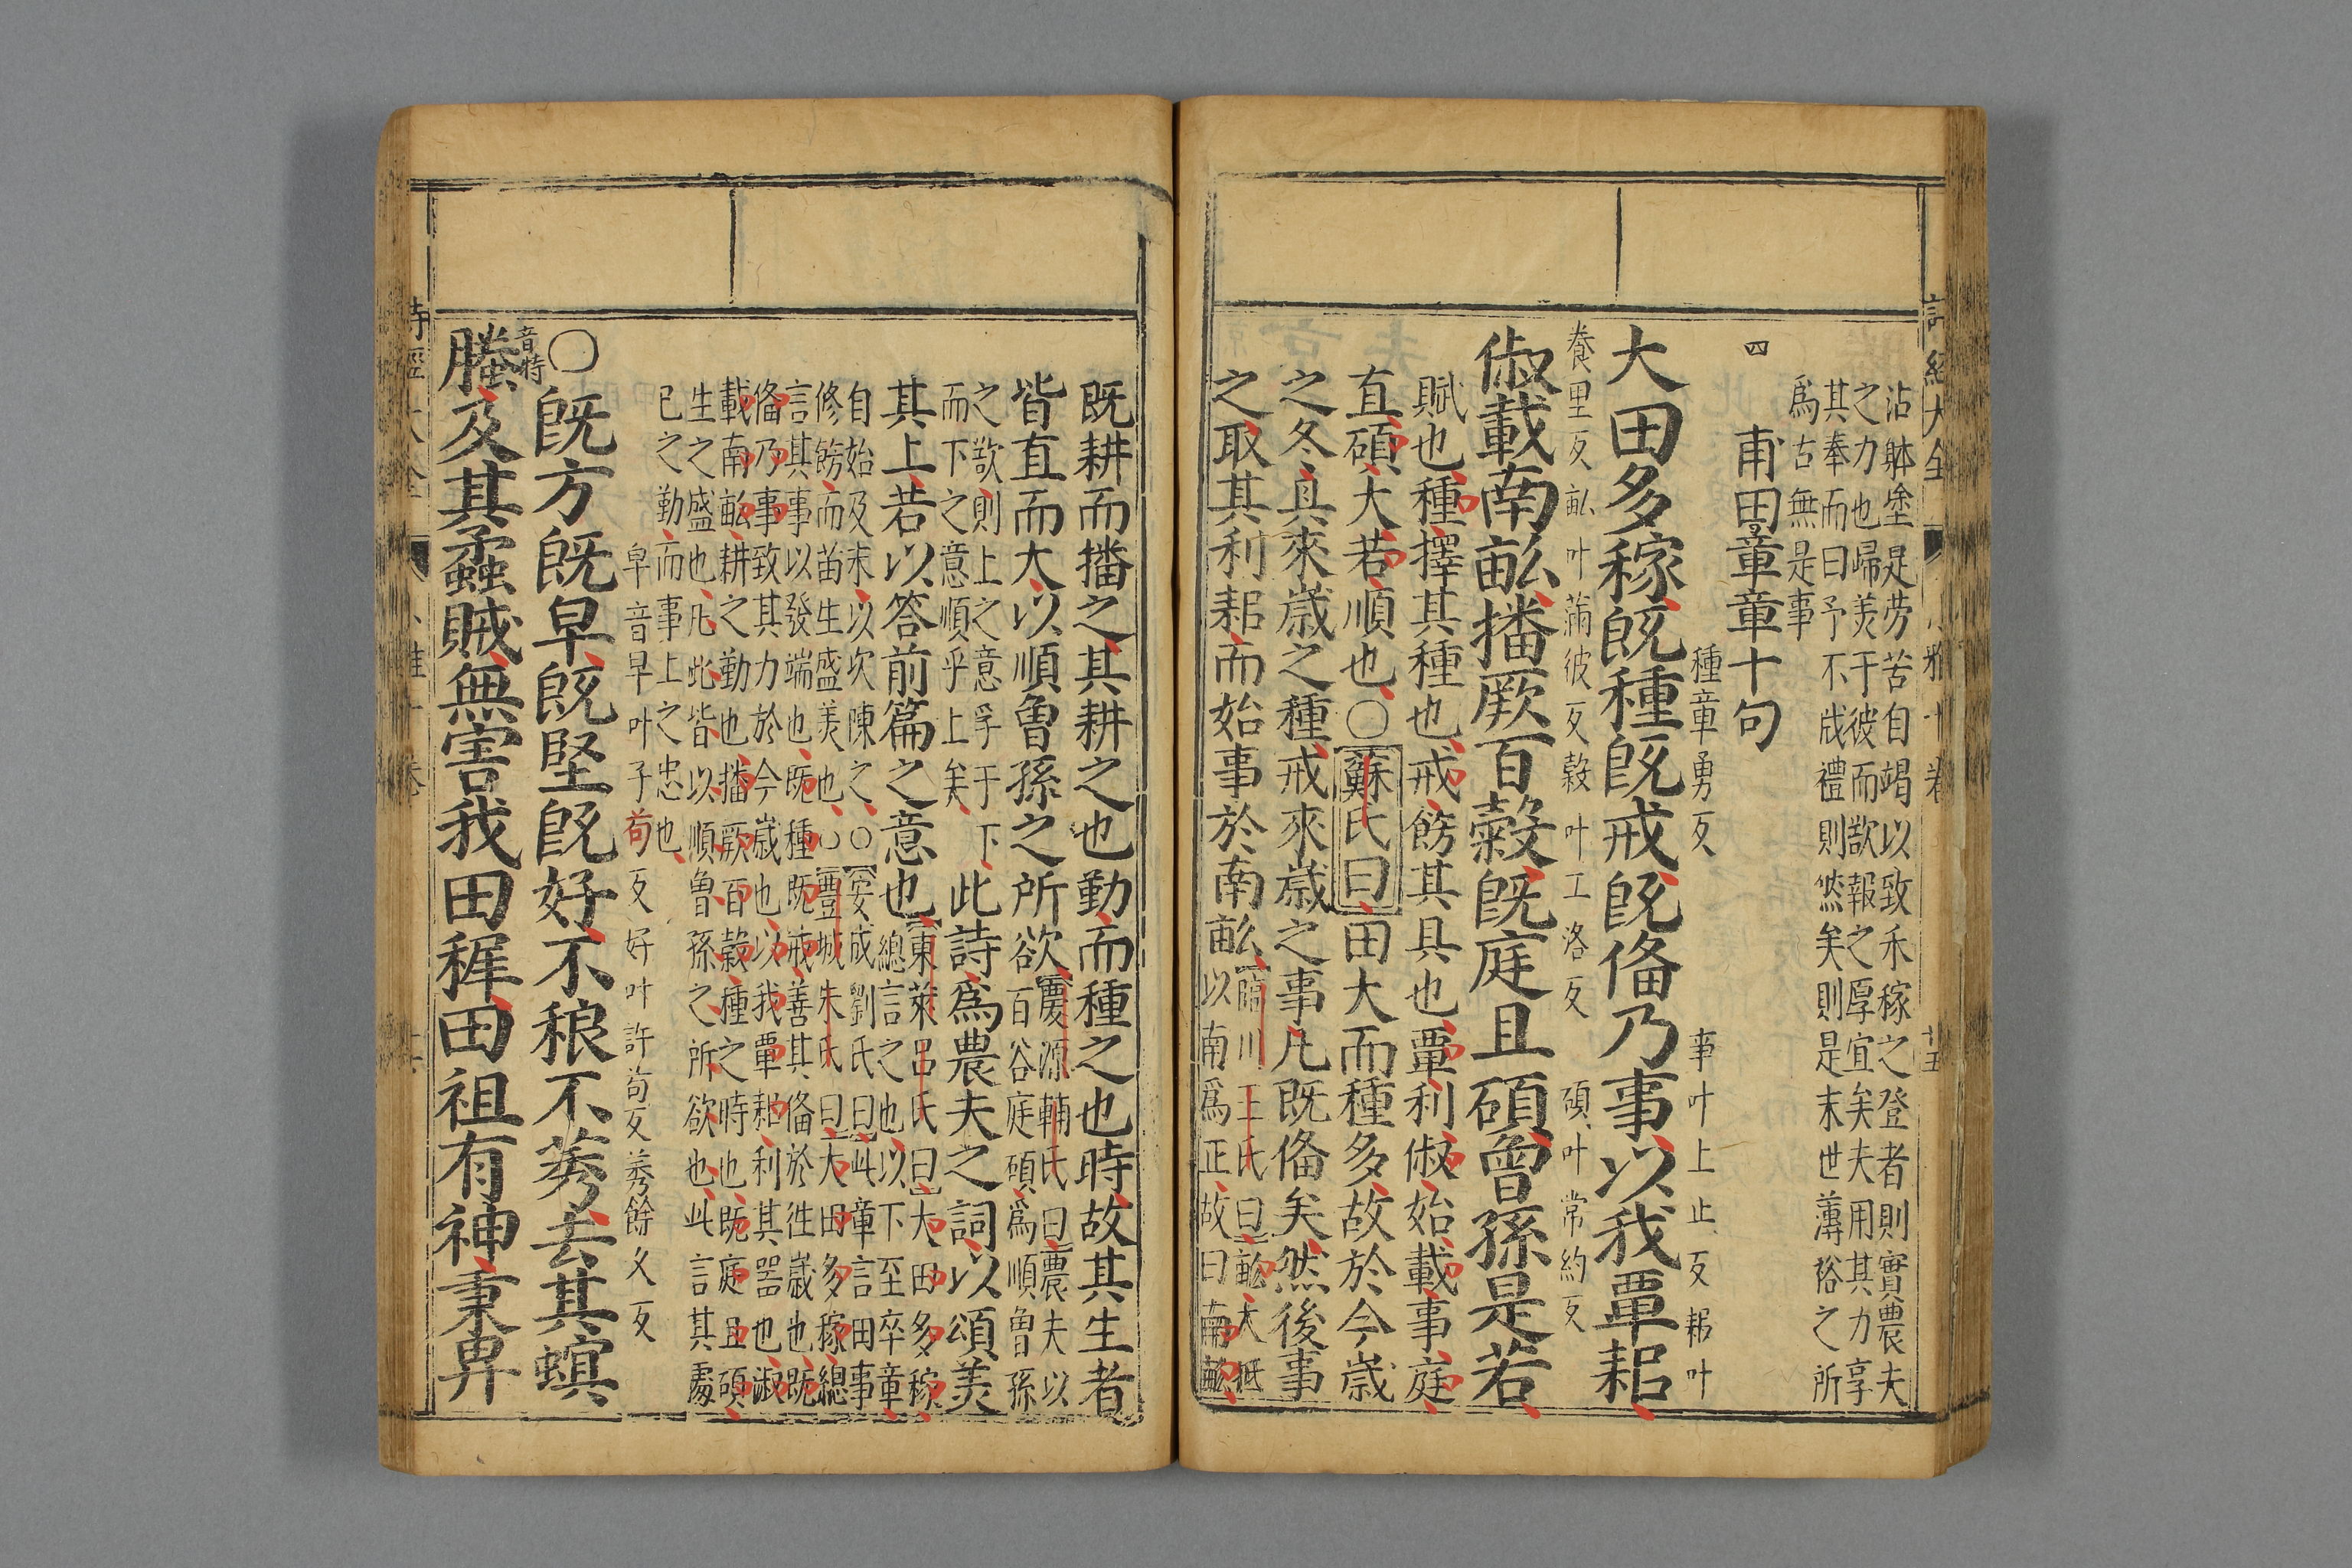 沾體塗足勞苦自竭以致禾稼之登者則實農夫
之力也歸美于彼而欲報之厚宜矣夫用其力享
其奉而曰予不戕禮則然矣則是末世薄俗之所
爲古無是事
甫田四章章十句
種章勇反
事叶上止反耜叶
大田多稼既種既戒既備乃事以我覃耜
養里反畝叶蒲彼反穀叶工洛反
碩叶常約反
俶載南畝播厥百穀既庭且碩曾孫是若
賦也種擇其種也戒飭其具也覃利俶始載事庭
直碩大若順也○蘇氏曰田大而種多故於今歲
之冬具來歲之種戒來歲之事凡既備矣然後事
之取其利耜而始事於南畝
臨川王氏曰畝大抵
以南爲正故曰南畝
既耕而播之其耕之也勤而種之也時故其生者
皆直而大以順曾孫之所欲
慶源輔氏曰農夫以
百谷庭碩爲順曾孫
之欲則上之意孚于下
而下之意順乎上矣
此詩爲農夫之詞以頌美
其上若以答前篇之意也
東萊呂氏曰大田多稼
總言之也以下至卒章
自始及末以次陳之○安成劉氏曰此章言田事
修飭而苗生盛美也○豐城朱氏曰大田多稼總
言其事以發端也既種既戒善其備於徃歲也既
備乃事致其力於今歲也以我覃耜利其器也俶
載南畝耕之勤也播厥百穀種之時也既庭且碩
生之盛也凡此皆以順曾孫之所欲也此言其處
已之勤而事上之忠也
皁音早叶子苟反好叶許苟反莠餘久反
○既方既皁既堅既好不稂不莠去其螟
音特
螣及其蟊賊無害我田穉田祖有神秉畀